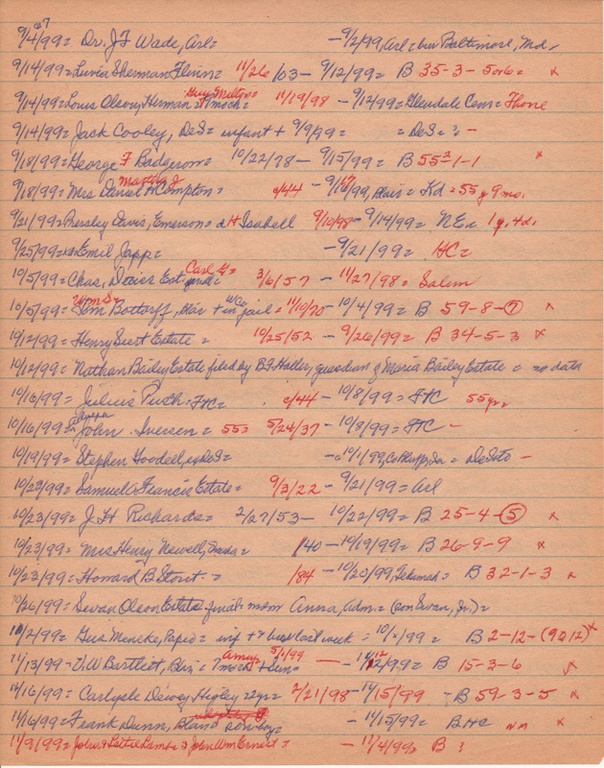 9/4/99= Dr. J F Wade, Arl= -9/2/99, Arl= bur Baltimore, Md.
9/14/99= Luvia Sherman Flinn= 11/26/63 - 9/12/99= B 35-3-5 or 6= x
9/14/99= Louis Olson, Herman + 9 mo ch= 11/19/98 - 9/12/99= Glendale Cem= Fhone
9/14/99= Jack Cooley, DeS= infant + 9/9/99= = DeS= ? -
9/18/99= George F Badgerow= 10/22/78 - 9/15/99= B 55-3-1-1 x
Martha J
9/18/99= Mrs Daniel H Compton= c/44 - 9/17/99, Blair= Kd= 55 y 9 mo.
9/21/99= Persley Davis, Emerson= d H Isabell 9/10/98 - 9/14/99= NE= 1 y, 4 d.
9/25/99= Emil Japp= -9/21/99= HC=
10/5/99= Chas, Dreier Est Carl G= 3/6/57 - 11/27/98= Salem
Wm S
10/5/99= Sam Bottorff, Blair + in W Co jail= 11/10/70 - 10/4/99= B 59-8-7 x
10/12/99= Henry Surt Estate= 10/25/52 - 9/26/99= B 34-5-3 x
10/12/99= Nathan Bailey Estate filed by B.F. Haller, guardian of Maria Bailey Estate= no data
10/16/99= Julius Puch= FTC= c/44 - 10/8/99= FTC 55 yr=
10/16/99= John Iversen= 55= 5/24/37 - 10/8/99= FTC -
10/19/99= Stephen Goodell, DeS= - 10/1/99, Co Bluffs, Ia= DeSoto -
10/23/99= Samuel Francis Estate= 9/3/22 - 9/21/99= Arl
10/23/99= J H Richards= 2/27/53 - 10/22/99= B 25-4-5 x
10/23/99= Mrs Henry Newell, = /40 - 10/19/99= B 26-9-9 x
10/23/99= Howard B Stout= /84 - 10/20/99, Tekamah= B 32-1-3 x
10/26/99= Swan Olson Estate final= mom Anna, Adm.= (son Swan, Jr.)=
11/2/99= Gus Mencke, Papio= inf + & bur last week= 10/ /99= B 2-12-(9912) x
11/13/99= U W Bartlett, Blair= 7 mo ch + Sun= Amy 5/1/99 - 11/12/99= B 15-3-6 x
11/16/99= Carlysle Dewey Higley 22 yr= 2/21/98 - 11/15/99 - B 59-3-5 x
11/16/99= Frank Dunn, -11/15/99= B HC NM x
11/9/99= John & Lettie Lamb= s John Wm Ernest= - 11/4/99= B ?